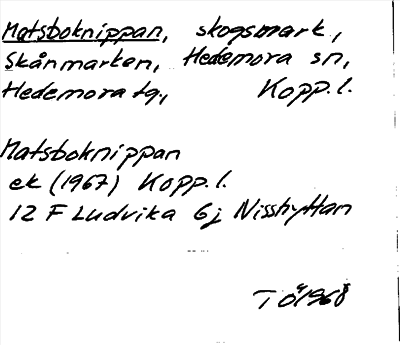 Matsboknippan, skogsmark,
Skånmarken, Hedemora sn,
Hedemora tg., Kopp. l.
Matsboknippan
ek (1967) Kopp. l.
12 F Ludvika 6j Nisshyttan
TÖ 1968